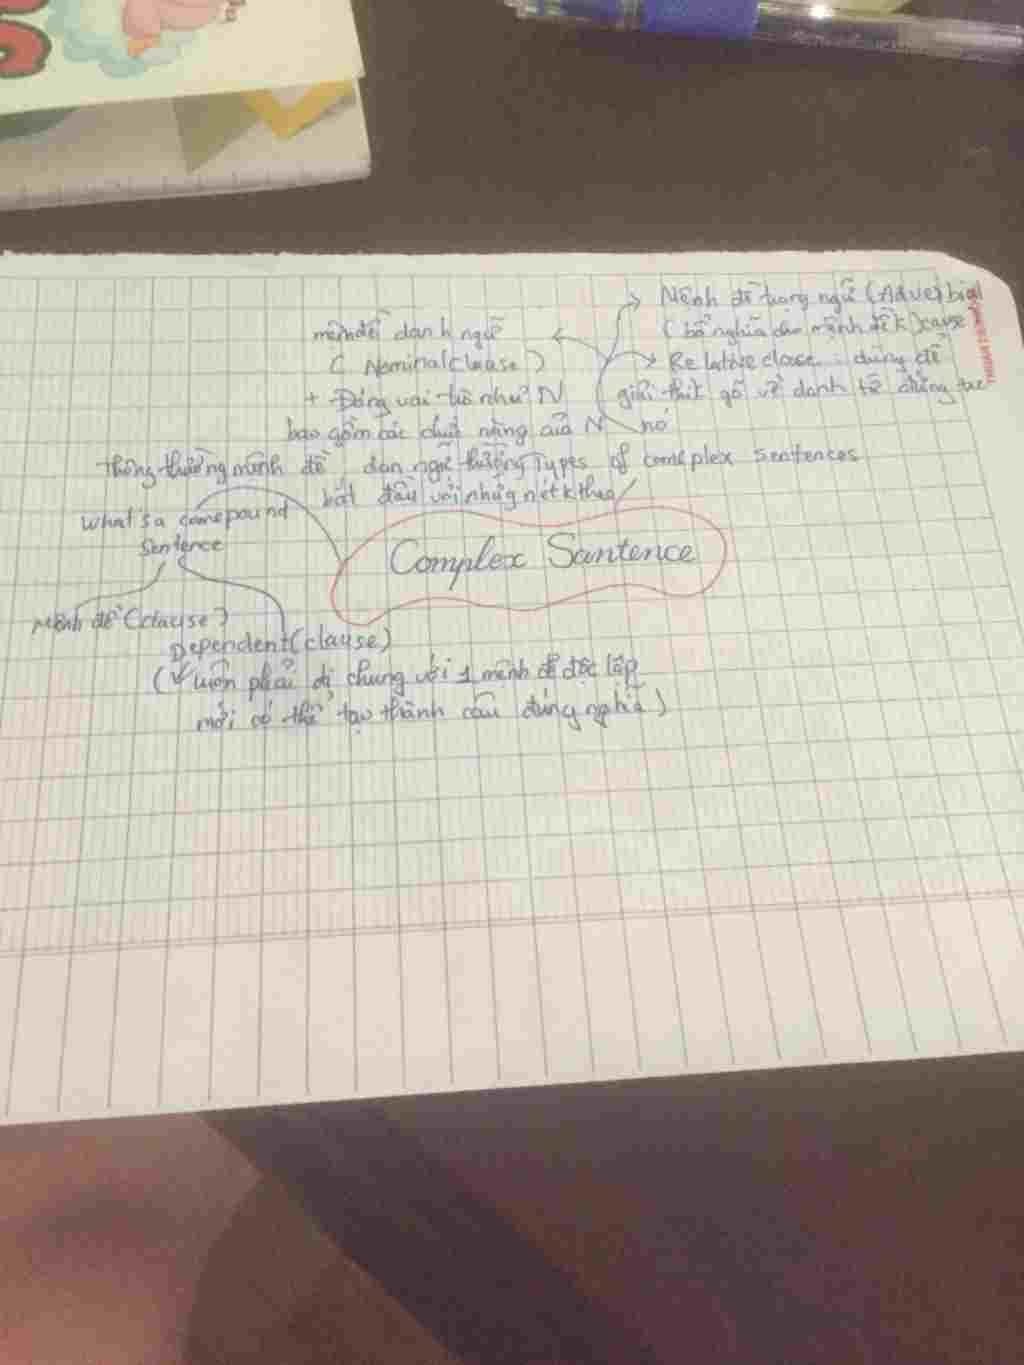 Mệnh đề trạng ngữ (Adverbial
(bổ nghĩa cho mệnh đề k) cause
mệnh đề danh ngữ
( Nominal Clause )
Relative close : dùng để
+ Đóng vai trò như N
giải thik về danh từ đứng
bao gồm các chức năng của N
nó
Thông thường mệnh đề dan ngữ thường
Types of complex sentences
bắt đầu với
What's a compound
Sentence
Complex Santence
Mệnh đề (clause)
Dependent (clause)
( luôn phải đi chung với 1 mệnh đề độc lập
mới có thể tạo thành câu đúng nghĩa )